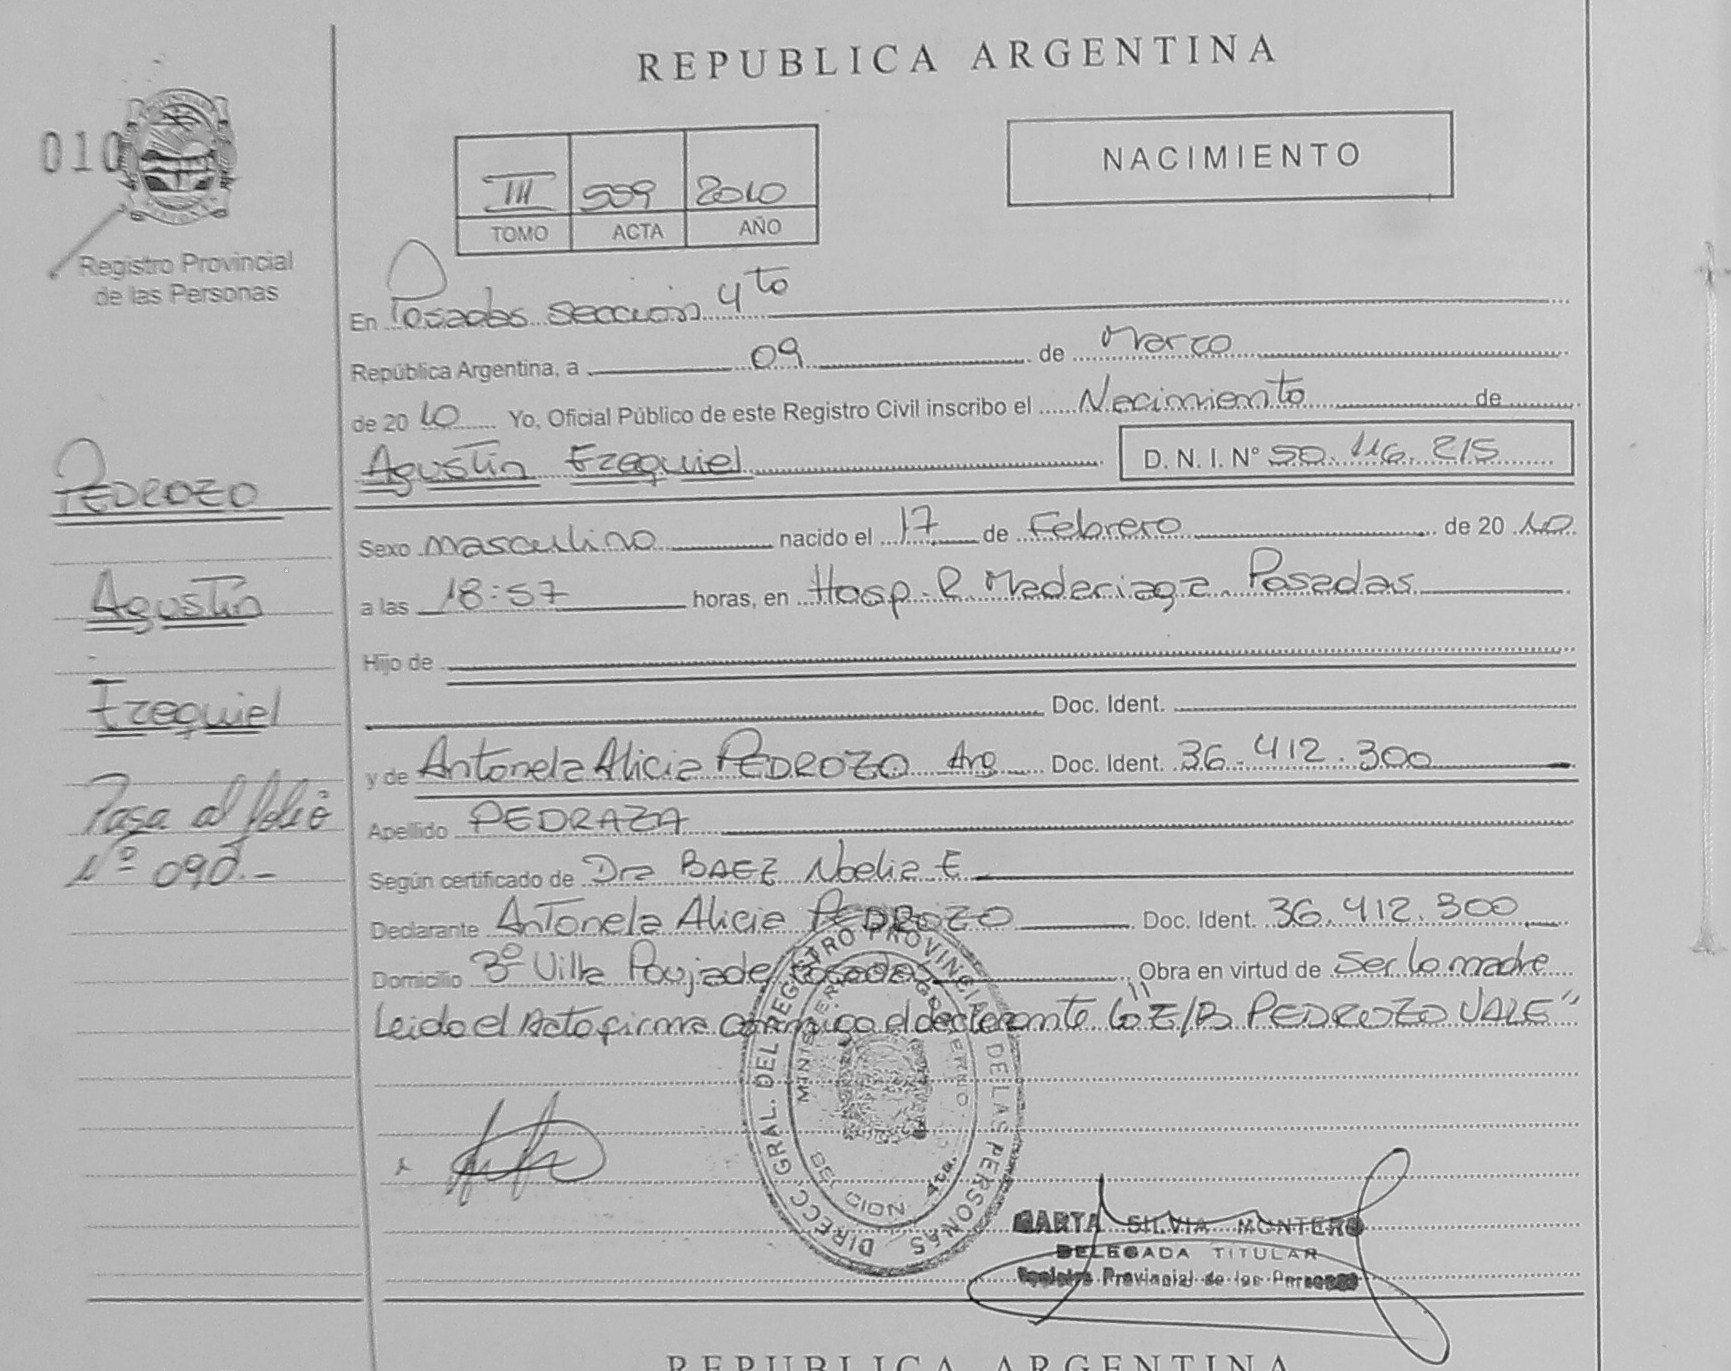 REPUBLICA ARGENTINA
010
NACIMIENTO
III 559 2010
TOMO ACTA AÑO
Registro Provincial
de las Personas
En Posadas sección 4to
República Argentina, a 09 de Marzo
de 2010 Yo, Oficial Público de este Registro Civil inscribo el Nacimiento de
Agustín Ezequiel D. N. I. N° 50.116.215
PEDROZO
Sexo masculino nacido el 17 de Febrero de 2010
Agustín
a las 18:57 horas, en Hosp. R. Madariaga. Posadas
Hijo de
Ezequiel
Doc. Ident.
y de Antonela Alicia PEDROZO Arg Doc. Ident. 36.412.300
Pasa al folio
Nº 090.-
Apellido PEDRAZA
Según certificado de Dra BAEZ Noelia E
Declarante Antonela Alicia PEDROZO Doc. Ident. 36.412.300
Domicilio Bº Villa Poujade Posadas Obra en virtud de ser la madre
Leido el Acta firma conmigo el declarante "E/B PEDROZO VALE"
DIRECC. GRAL. DEL REGISTRO PROVINCIAL DE LAS PERSONAS
MINISTERIO GOBIERNO
SECCION 4ta.
MARTA SILVIA MONTERO
DELEGADA TITULAR
Registro Provincial de las Personas
REPUBLICA ARGENTINA